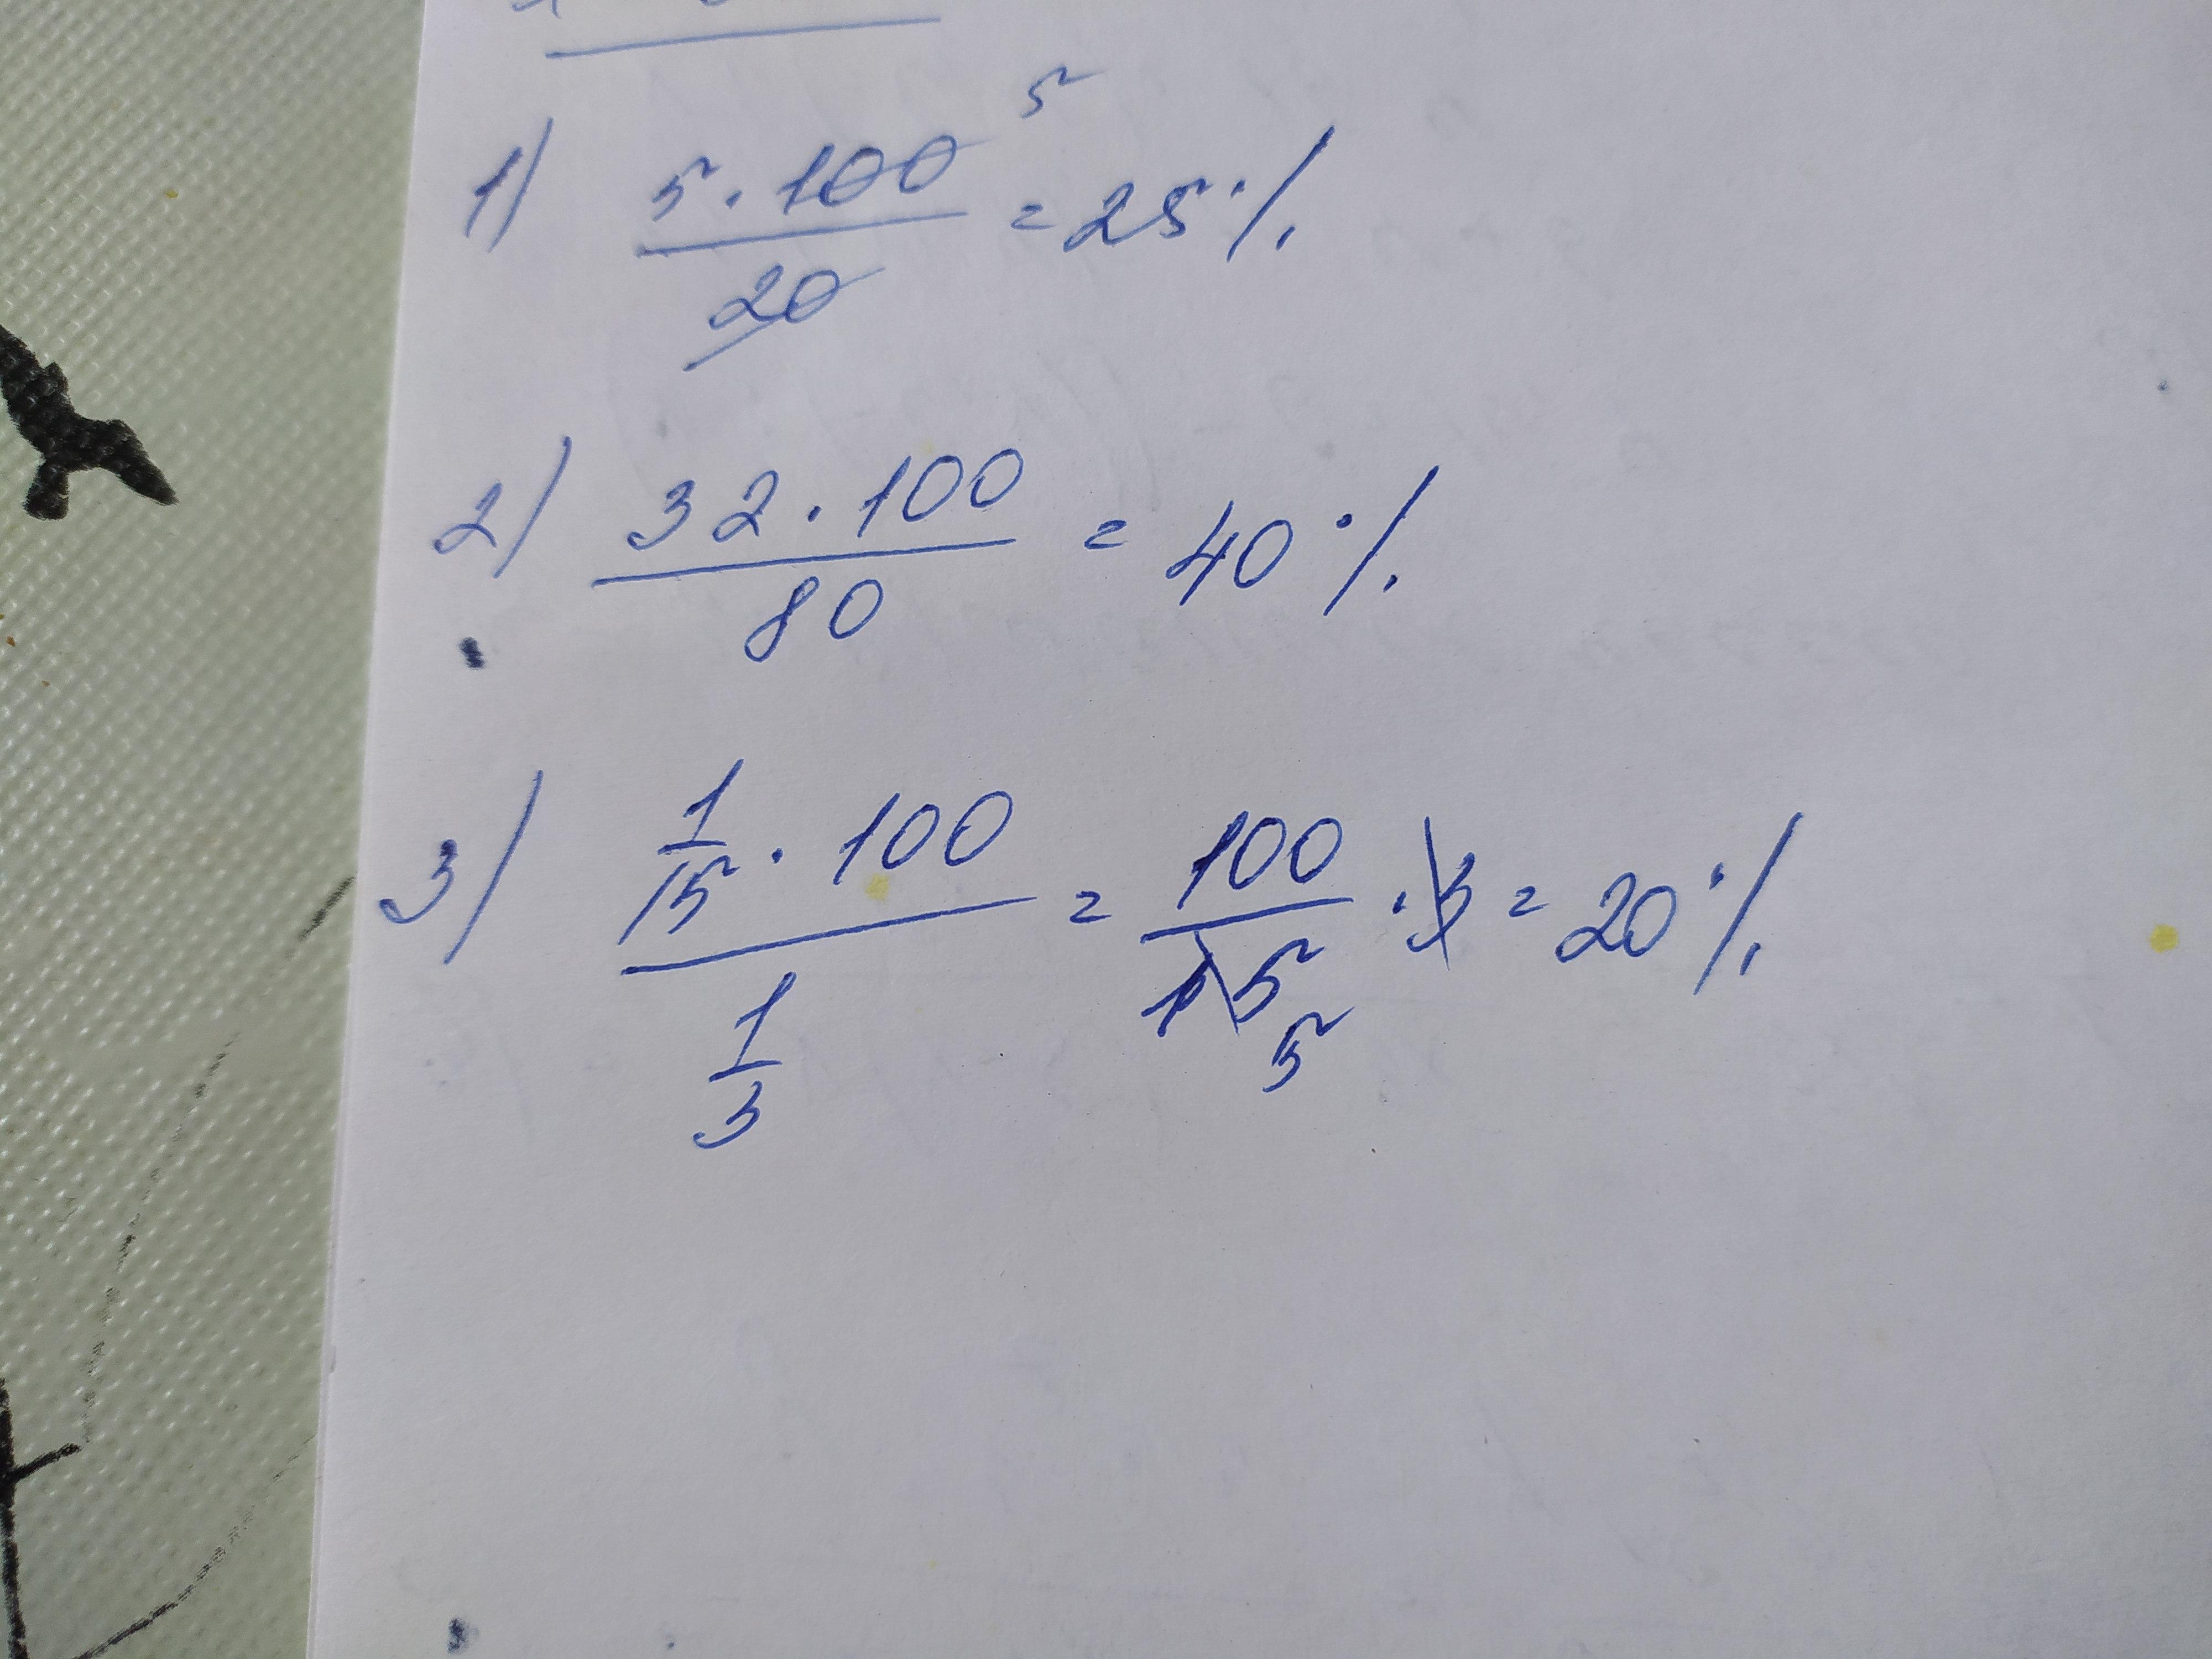 5
1) 5 · 100 / 20 = 25 %
2) 32 · 100 / 80 = 40 %
3) 1/15 · 100 / 1/3 = 100/15 · 3 = 20 %
5